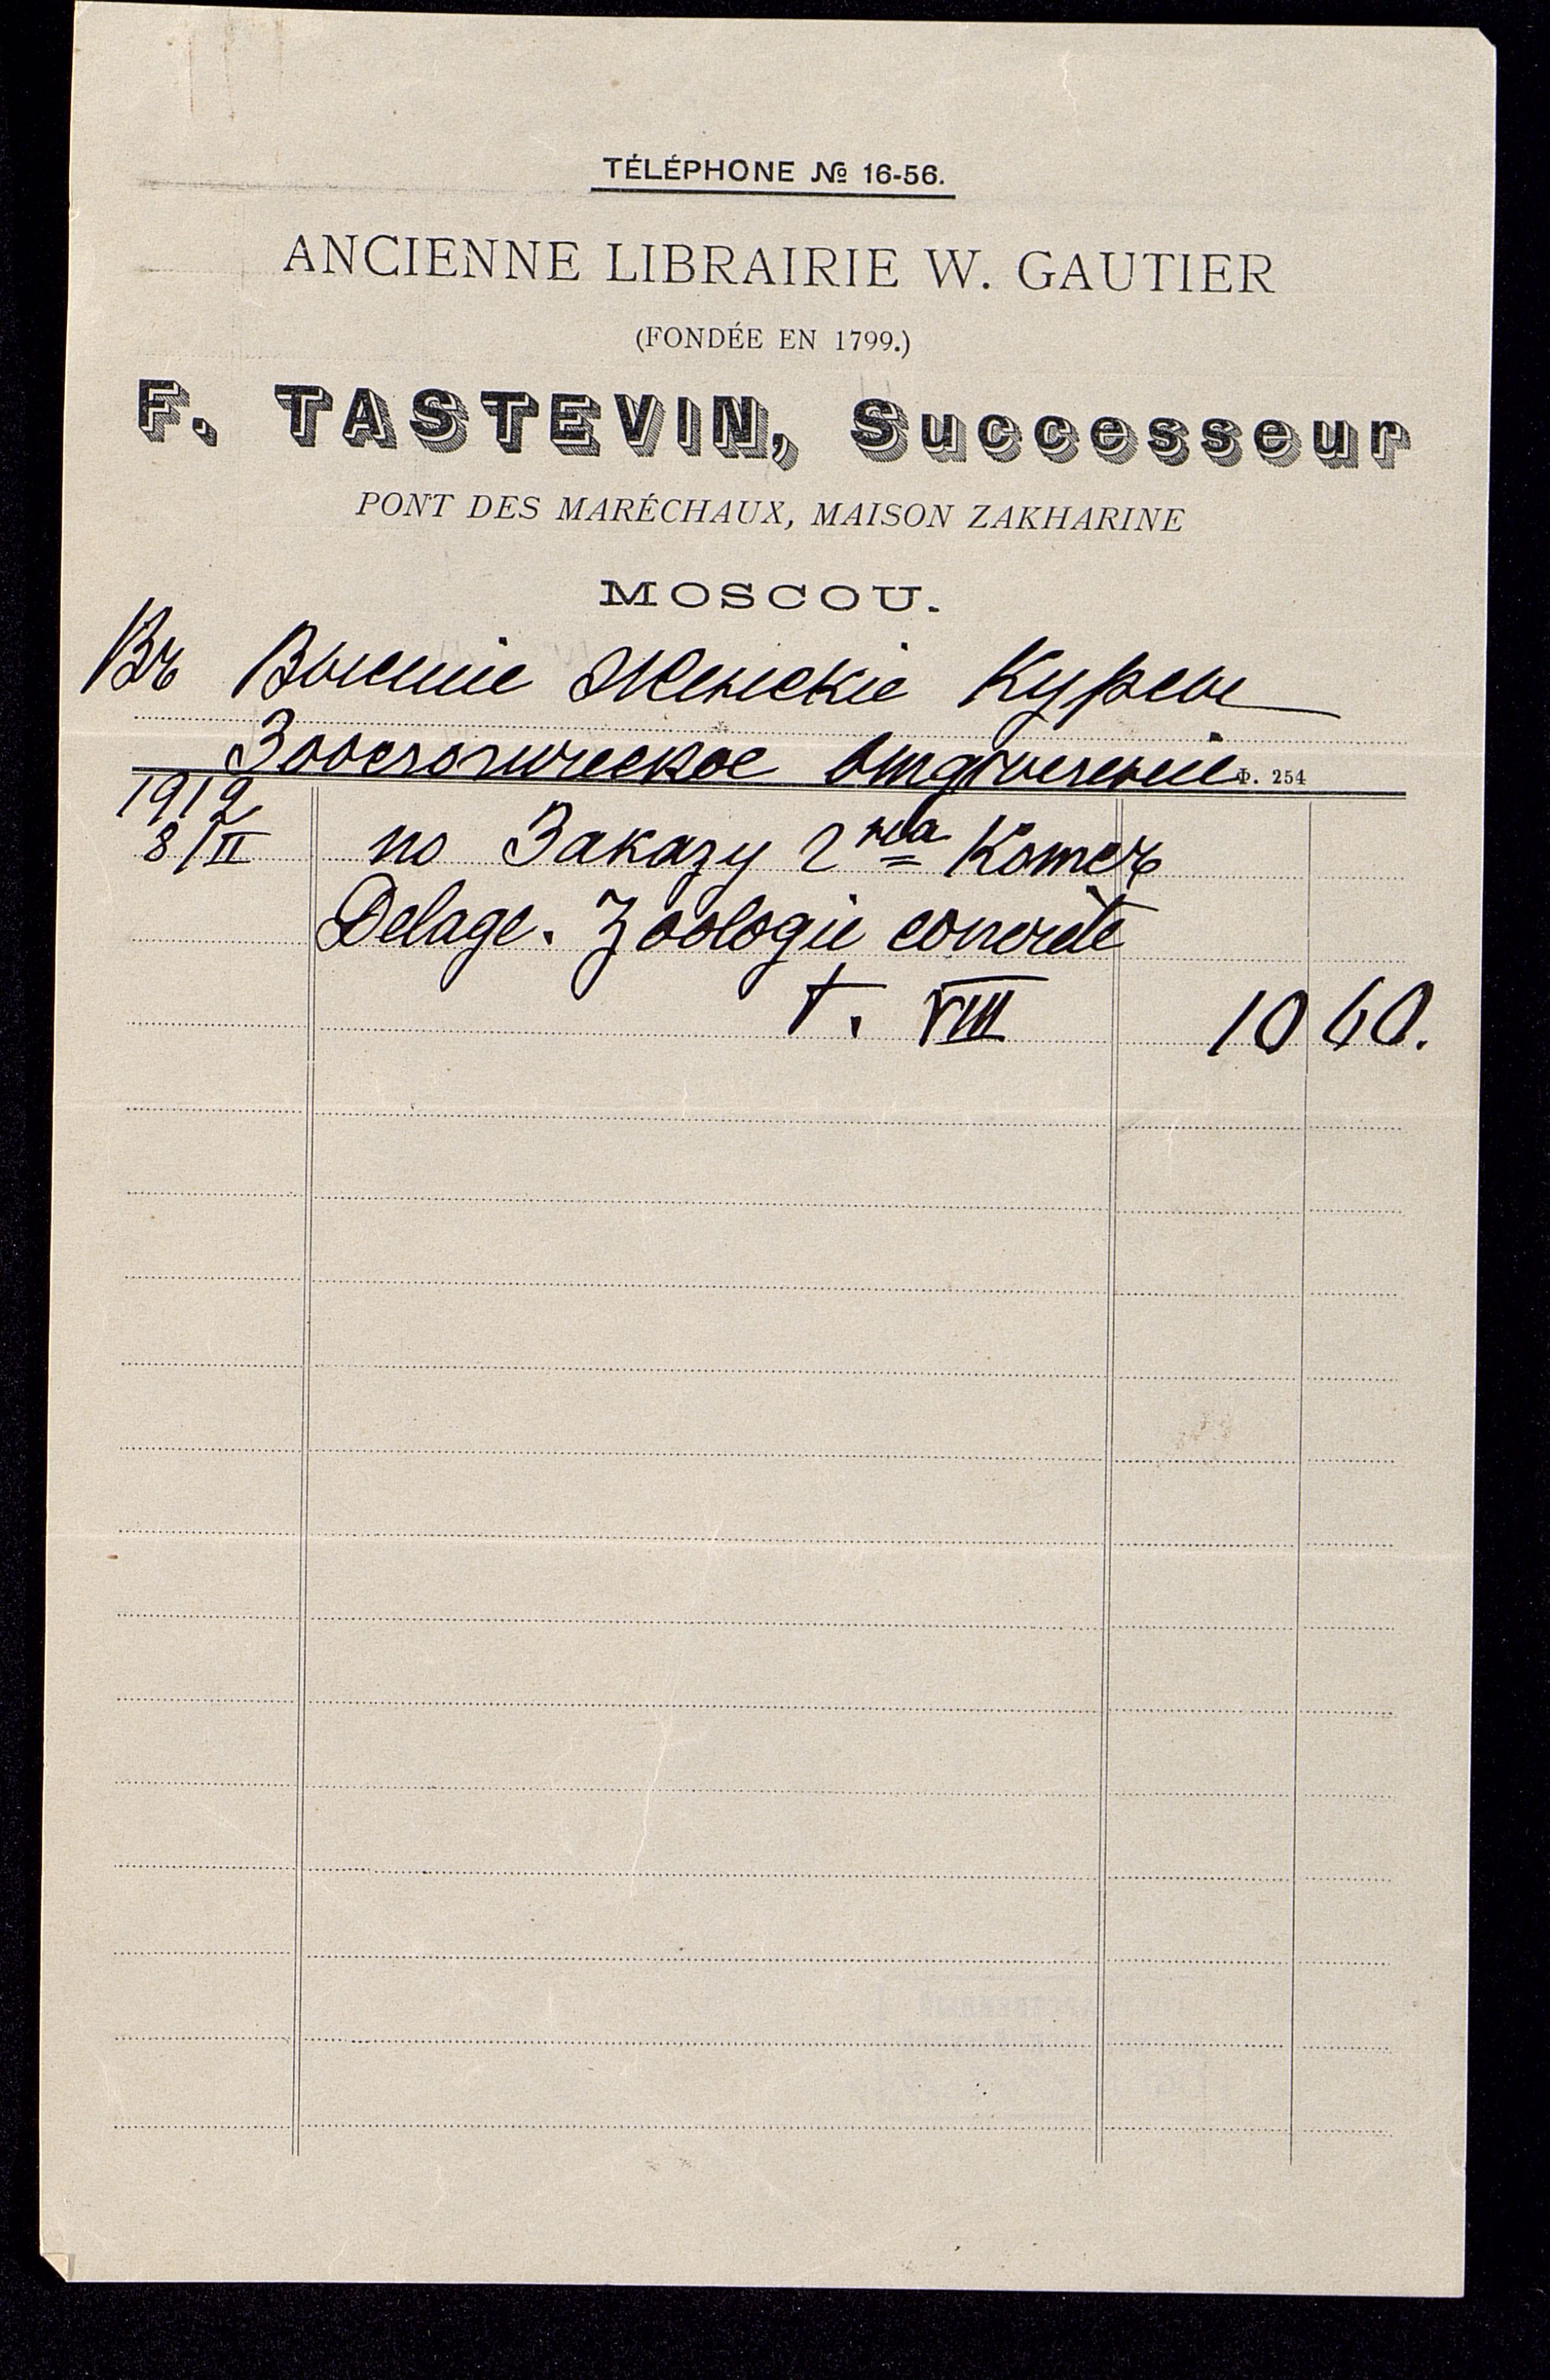 TÉLÉPHONE № 16-56.
ANCIENNE LIBRAIRIE W. GAUTIER
(FONDÉE EN 1799.)
F. TASTEVIN, Successeur
PONT DES MARÉCHAUX, MAISON ZAKHARINE
MOSCOU.
Въ Высшіе Женскіе Курсы
Зоологическое Отдѣленіе
Ф. 254
1912
8/II по Заказу г-на Котсъ
Delage. Zoologie concrète
T. VIII 10 60.